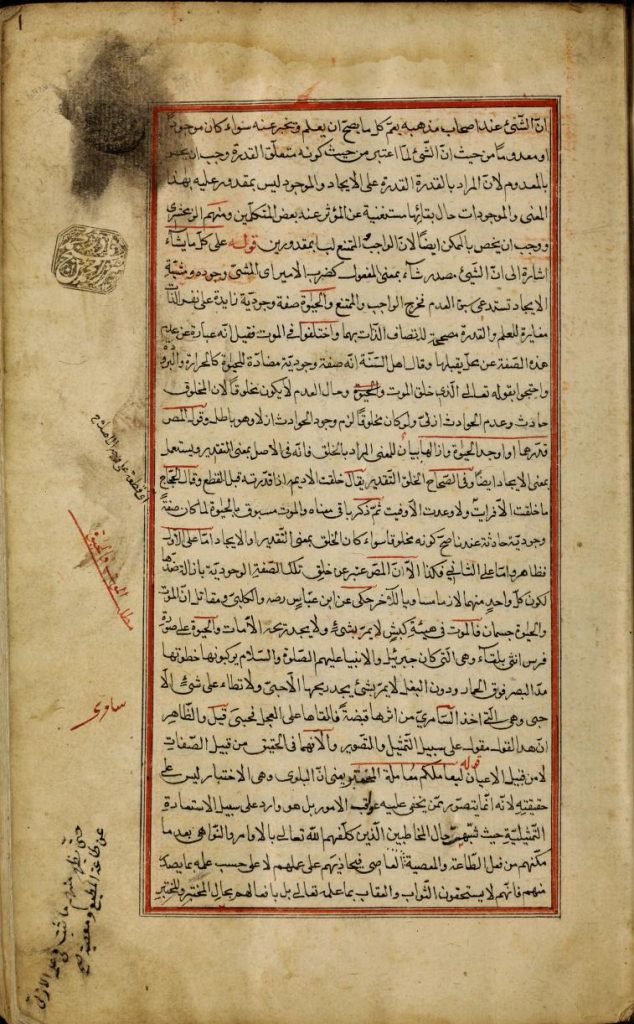 1
انّ الشّيئ عند اصحاب مذهبه يعمّ كل ما يصحّ ان يعلم ويخبر عنه سواء كان موجودا
او معدوماً من حيث انّ الشّيئ لمّا اعتبر من حيث كونه متعلّق القدرة وجب ان يخص
بالمعدوم لانّ المراد بالقدرة القدرة على الايجاد والموجود ليس بمقدور عليه بهذا
المعنى والموجودات حال بقائها مستغنية عن المؤثر عند بعض المتكلّمين ومنهم الزمخشرى
ووجب ان يخص بالممكن ايضاً لانّ الواجب والممتنع ليسا بمقدورين قوله على كلّ ما يشاء
اشارة الى انّ الشّيئ مصدر شاء بمعنى المفعول كضرب الامير اى المشئ وجوده ومشيّة
الايجاد تستدعى سبق العدم فخرج الواجب والممتنع والحيوة صفة وجوديّة زايدة على نفس الذّات
مغايرة للعلم والقدرة مصحّحة لاتصاف الذّات بهما واختلفوا فى الموت فقيل انّه عبارة عن عدم
هذه الصّفة عن محلّ يقبلها وقال اهل السّنّة انّه صفة وجوديّة مضادّة للحيوة كالحرارة والبرودة
واحتجوا بقوله تعالى الّذى خلق الموت والحيوة وحال العدم لا يكون مخلوقا لانّ المخلوق
حادث وعدم الحوادث ازلىّ ولو كان مخلوقا لزم وجود الحوادث ازلا وهو باطل وقول المص
قدرهما او اوجد الحيوة وازالها بيان للمعنى المراد بالخلق فانّه فى الاصل بمعنى التقدير ويستعمل
بمعنى الايجاد ايضاً وفى الصّحاح الخلق التّقدير يقال خلقت الاديم اذا قدرته قبل القطع وقال الحجّاج
ما خلقت الّا فريت ولا وعدت الّا وفيت ثمّ ذكر باقى معناه والموت مسبوق بالحيوة لما كان صفةً
وجوديّة حادثة عندنا صحّ كونه مخلوقا سواء كان الخلق بمعنى التّقدير او الايجاد امّا على الاوّل
فظاهر وامّا على الثّانى فكذا الّا انّ المص عبّر عن خلق تلك الصّفة الوجوديّة بازالة ضدّها
لكون كلّ واحد منهما لازما مساويا للآخر حكى عن ابن عبّاس رضه والكلبىّ ومقاتل انّ الموت
والحيوة جسمان فالموت فى هيئة كبش لا يمرّ بشئ ولا يجد ريحه الّا مات والحيوة على صورة
فرس انثى بلقاء وهى الّتى كان جبريل والانبيا عليهم الصّلوة والسّلام يركبونها خطوتها
مدّ البصر فوق الحمار ودون البغل لا يمرّ بشئ يجد ريحها الّا حيى ولا تطاء على شئ الّا
حيى وهى الّتى اخذ السّامرىّ من اثرها قبضة فالقاها على العجل فحيى قيل والظّاهر
انّ هذا القول مقول على سبيل التّمثيل والتّصوير والّا فهما فى الحقيق من قبيل الصّفات
لا من قبيل الاعيان قوله ليعاملكم معاملة المختبر يعنى انّ البلوى وهى الاختبار ليس على
حقيقته لانّه انّما يتصوّر ممّن يخفى عليه عواقب الامور بل هو وارد على سبيل الاستعارة
التّمثيليّة حيث شبّهت حال المخاطبين الّذين كلّفهم الله تعالى بالاوامر والنّواهى بعد ما
مكّنهم من فعل الطّاعة والمعصية العاصى فيجازيهم على عملهم لا على حسب علمه بما يصدر
منهم فانّهم لا يستحقّون الثّواب والعقاب بما علمه تعالى بل بافعالهم بحال المختبر والمختبر
مطلب الموت والحيوة
سامرى
حتى يظهر منهم ما ثبت فى علمه الازلى
عن طاعة المطيع ومعصية صح